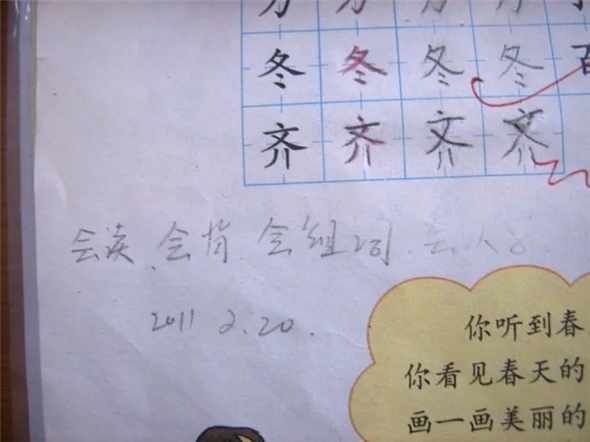 冬 冬 冬 冬
齐 齐 齐 齐
会读、会背 会组词.
2011 2.20.
你听到春
你看见春天的
画一画美丽的